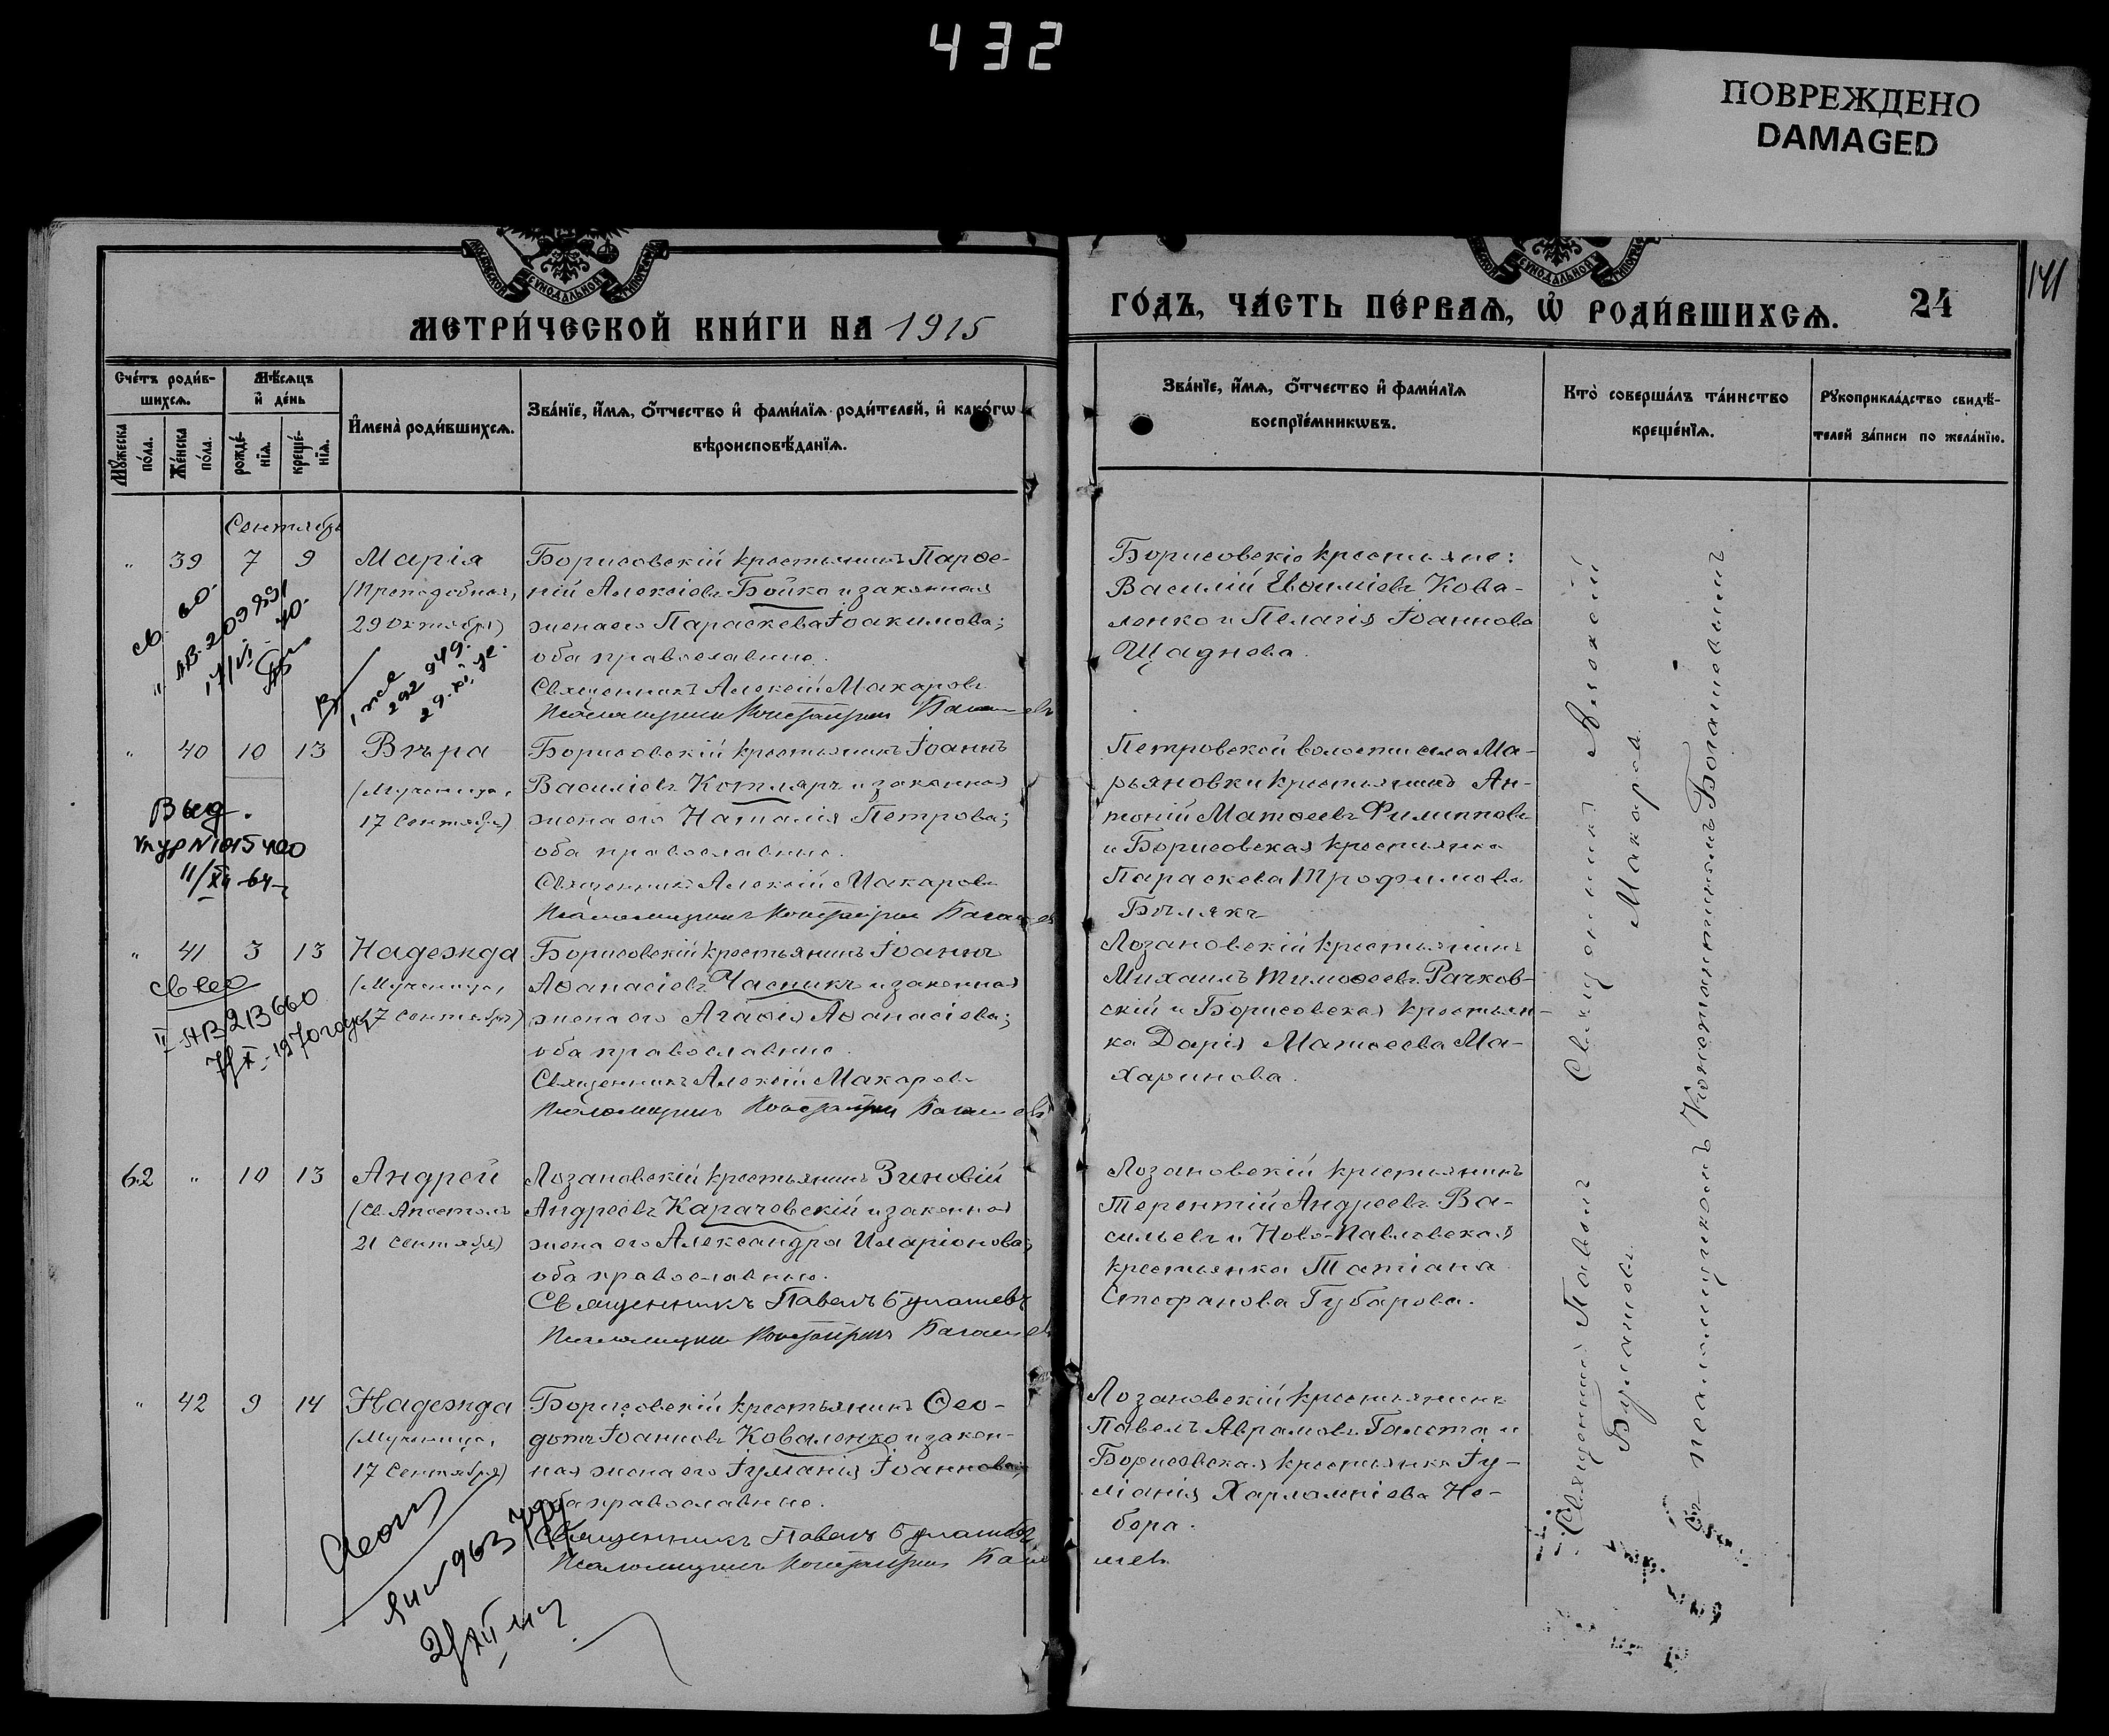 432
ПОВРЕЖДЕНО
DAMAGED
МЕТРИ́ЧЕСКОЙ КНИ́ГИ НА 1915
ГО́ДЪ, ЧА́СТЬ ПЕ́РВАѦ, Ѡ҆ РОДИ́ВШИХСѦ. 24
141
Сче́тъ роди́в-
шихсѧ.
Мѣ́сѧцъ
и҆ де́нь
Мꙋ́жеска
по́ла.
Же́нска
по́ла.
рожде́-
нїѧ.
креще́-
нїѧ.
И҆мена̀ роди́вшихсѧ.
Зва́нїе, и҆́мѧ, ѻ҆́тчество и҆ фами́лїѧ роди́телей, и҆ како́гѡ
вѣроисповѣ́данїѧ.
Зва́нїе, и҆́мѧ, ѻ҆́тчество и҆ фами́лїѧ
воспрїе́мникѡвъ.
Кто̀ соверша́лъ та́инство
креще́нїѧ.
Рꙋкоприкла́дство свидѣ́-
телей за́писи по жела́нїю.
Сентябрь
" 39 7 9 Марія
(Преподобная,
29 Октября)
Борисовскій крестьянинъ Парѳе-
ній Алексіевъ Бойко и законная
жена его Параскева Іоакимова;
оба православные.
Священникъ Алексій Макаровъ
Псаломщикъ Константинъ
Борисовскіе крестьяне:
Василій Кова-
ленко и Пелагія Іоаннова
Щаднева.
" 40 10 13 Вѣра
(Мученица,
17 Сентября)
Борисовскій крестьянинъ Іоаннъ
Василіевъ Котляръ и законная
жена его Наталія Петрова;
оба православные.
Священникъ Алексій Макаровъ
Псаломщикъ Константинъ
Петровской волости села Ма-
рьяновки крестьянинъ Ан-
тоній Матѳеевъ Филипповъ
и Борисовская крестьянка
Параскева Трофимова
Бѣлякъ
Выд.
" 41 3 13 Надежда
(Мученица,
17 Сентября)
Борисовскій крестьянинъ Іоаннъ
Аѳанасіевъ Часникъ и законная
жена его Агаѳія Аѳанасіева;
оба православные.
Священникъ Алексій Макаровъ
Псаломщикъ Константинъ
Лозановскій крестьянинъ
Михаилъ Тимоѳеевъ Рачков-
скій и Борисовская крестьян-
ка Дарія Матѳеева Ма-
харинова.
62 " 10 13 Андрей
(Св. Апостолъ
21 Сентября)
Лозановскій крестьянинъ Зиновій
Андреевъ Карачевскій и законная
жена его Александра Иларіонова;
оба православные.
Священникъ Павелъ Булашевъ
Псаломщикъ Константинъ
Лозановскій крестьянинъ
Терентій Андреевъ Ва-
сильевъ и Ново-Павловская
крестьянка Татіана
Стефанова Губарова.
" 42 9 14 Надежда
(Мученица,
17 Сентября)
Борисовскій крестьянинъ Ѳео-
дотъ Іоанновъ Коваленко и закон-
ная жена его Іуліанія Іоаннова;
оба православные.
Священникъ Павелъ Булашевъ
Псаломщикъ Константинъ
Лозановскій крестьянинъ
Павелъ Аврамовъ и
Борисовская крестьянка Іу-
ліанія Харлампіева Не-
бора.
Священникъ Алексій
Макаровъ.
Священникъ Павелъ
Булашевъ
Съ псаломщикомъ Константиномъ